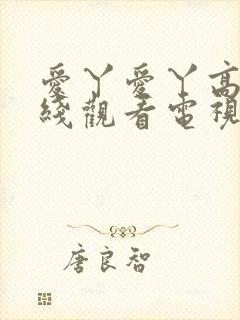 愛丫愛丫高
綫觀看電視
唐良智